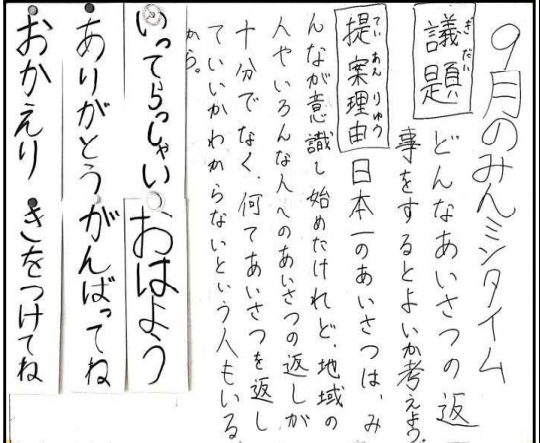 9月のみんミンタイム
議題 どんなあいさつの返
ぎだい
事をするとよいか考えよう。
提案理由 日本一のあいさつは、み
ていあんりゆう
んなが意識し始めたけれど、地域の
人やいろんな人へのあいさつの返しが
十分でなく、何てあいさつを返し
ていいかわからないという人もいる
から。
いってらっしゃい おはよう
ありがとう がんばってね
おかえり きをつけてね